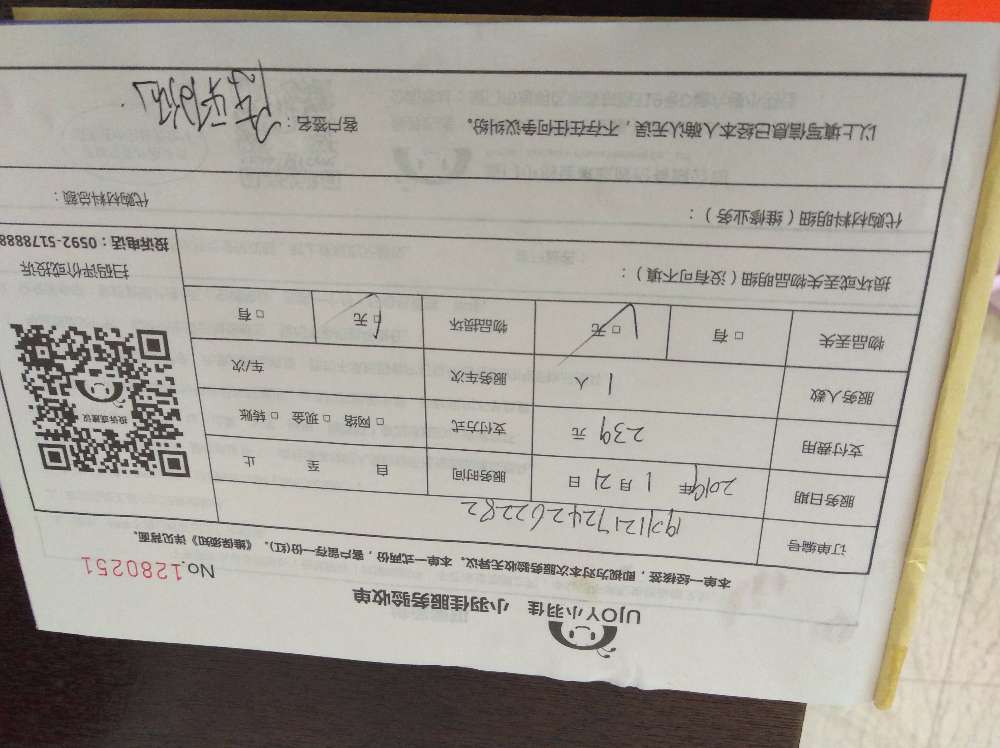 UJOY小羽佳 小羽佳服务验收单
No.1280251
本单一经核签，即视为对本次服务验收无异议。本单一式两份，客户留存一份(红)。《维保须知》详见背面。
订单编号
服务日期 2019年 1月21日 服务时间 自 至 止
支付费用 239 元 支付方式 □ 网络 □ 现金 □ 转账
服务人数 1 人 服务车次 车/次
物品丢失 □ 有 □ 无 物品损坏 □ 无 □ 有
投诉或建议
扫码评价或投诉
投诉电话：0592-5178888
损坏或丢失物品明细（没有可不填）：
代购材料明细（维修业务）： 代购材料总额：
以上填写信息已经本人确认无误，不存在任何争议纠纷。 客户签名：